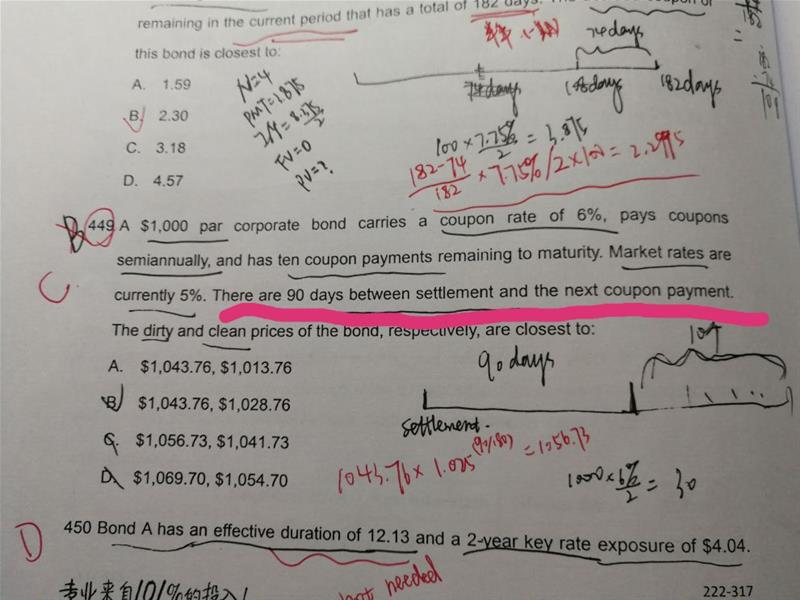 remaining in the current period that has a total of 182 days.
this bond is closest to:
A. 1.59
B. 2.30
C. 3.18
D. 4.57
N=4
PMT=3.875
FV=0
PV=?
74 days
74 days
108 days
182 days
100 × 7.75%/2 = 3.875
182-74/182 × 7.75%/2 × 100 = 2.2995
449 A $1,000 par corporate bond carries a coupon rate of 6%, pays coupons
semiannually, and has ten coupon payments remaining to maturity. Market rates are
C
currently 5%. There are 90 days between settlement and the next coupon payment.
The dirty and clean prices of the bond, respectively, are closest to:
A. $1,043.76, $1,013.76
B. $1,043.76, $1,028.76
C. $1,056.73, $1,041.73
D. $1,069.70, $1,054.70
90 days
settlement.
1043.76 × 1.025^(90/180) = 1056.73
1000 × 6%/2 = 30
D
450 Bond A has an effective duration of 12.13 and a 2-year key rate exposure of $4.04.
not needed
专业来自101%的投入!
222-317